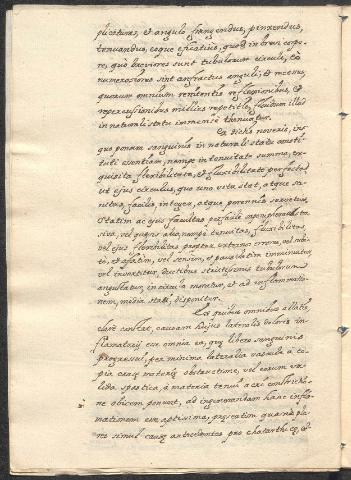 plicaturas, et angulo frangendus, pinsendus,
tenuandus, eoque eficatius, quod in brevi corpo
re, quo breviores sunt tubulorum circuli, eo
numerosiores sunt anfractus, anguli, et meatus,
quorum omnium renitentia reflexionibus, et
repercussionibus millies repetitis, fluidum illud
in naturali statu immense tenuatur.
Ex dictis noveris, in
quo ponam sanguinis in naturali statu consti
tuti essentiam, nempe in tenuitate summa, ex
quisita flexibilitate, et fluxibilitate perfecta
ut ejus circulus, quo uno vita stat, atque sa
nitas, facilis, integer, atque perennis servetur.
Statim ac ejus facultas
siva, vel quavis alia, nempe tenuitas, fluxibilitas,
vel ejus flexibilitas propter externos errores, vel subi
to, et afatim, vel sensim, et paulatim imminuitur,
vel inverititur, ductibus strictissimis tubulorum
angustatur, in circuitu moratur, et ad inflammatio
nem, misia stasi, disponitur.
Ex quibus omnibus allatis
clare constat, causam hujus lateralis doloris in
flamatorii esse omnia ea, quae libero sanguinis
progressui, per minima lateralia vascula a co
pia causae motoris obstructione, vel earum va
lida spastica, a materia tenui acri constrictio
ne obicem ponunt, ad ingenerandam hanc infla
mationem esse aptissima, praesertim quando pla
res simul causae antecedentes pro catarthicae, et